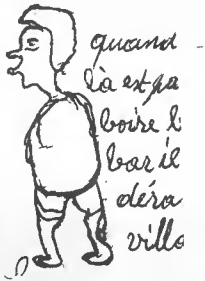 quand
là est pa
boire l
bar il
déra
villa